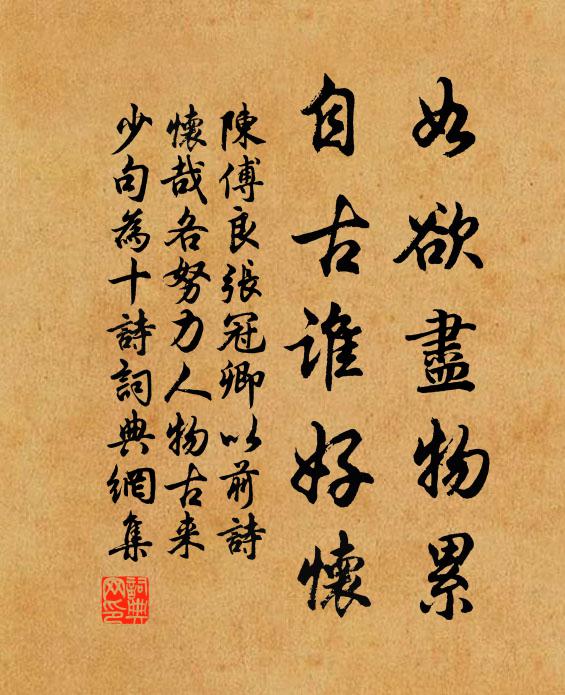 如欲盡物累
自古誰好懷
陳傅良張冠卿以前詩
懷哉各努力人物古来
少句為十詩詞典網集
詞典
网印